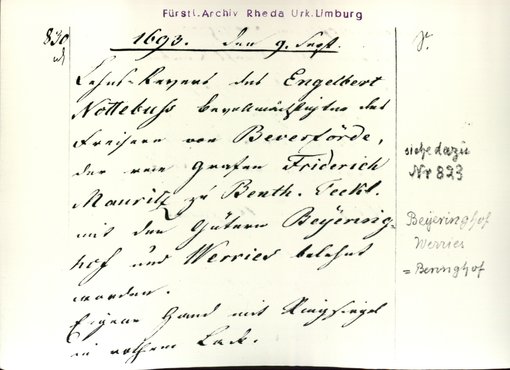 Fürstl. Archiv Rheda Urk. Limburg
830
1693. den 9. Sept.
Lehns-Revers des Engelbert
Nottebuss bevollmächtigter des
Freiherrn von Beverförde,
der vom Grafen Friderich
Mauritz zu Benth. Teckl.
mit den Gütern Beÿering-
hof und Werries belehnt
worden.
Eigene Hand mit Ringsiegel
in rothem Lack.
siehe dazu
Nr 823
Beÿeringhof
Werries
= Beringhof